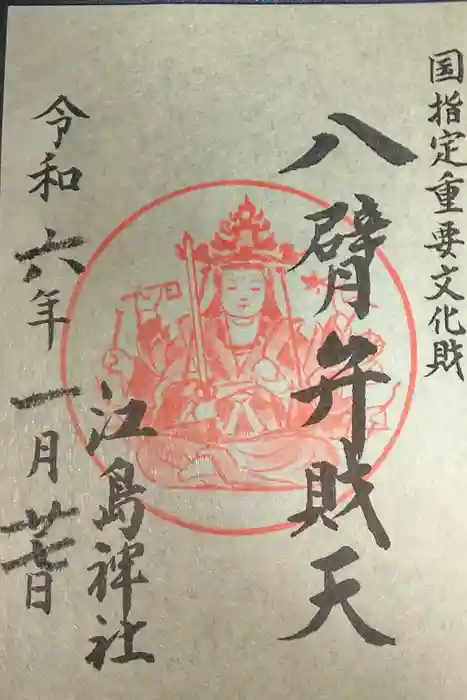 国指定重要文化財
八臂弁財天
江島神社
令和六年一月廿七日